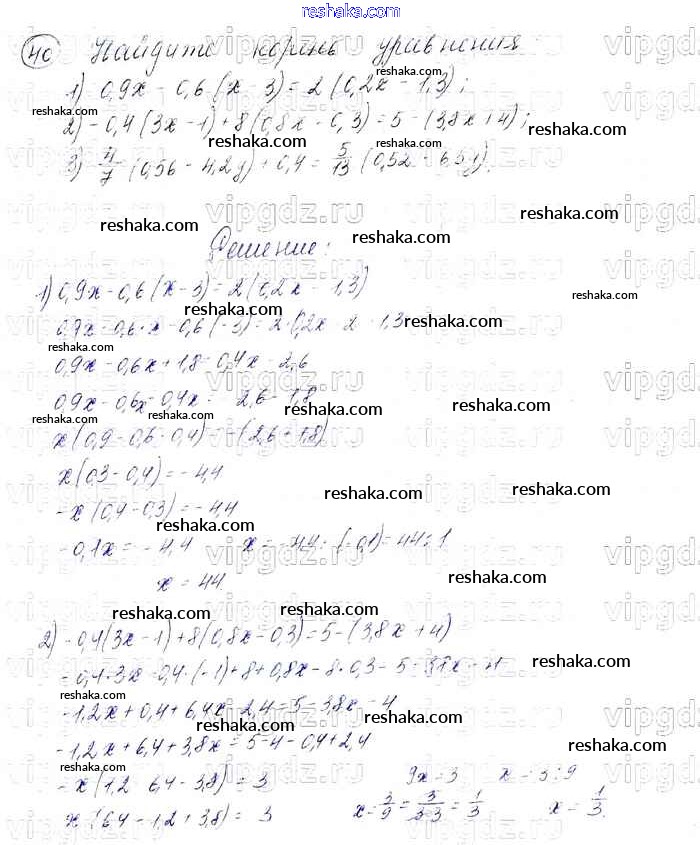 reshaka.com
40 Найдите корень уравнения:
1) 0,9x - 0,6(x - 3) = 2(0,2x - 1,3);
2) - 0,4(3x - 1) + 8(0,8x - 0,3) = 5 - (3,8x + 4);
3) 4/7 (0,56 - 4,2y) + 0,4 = 5/13 (0,52 - 6,5y).
Решение:
1) 0,9x - 0,6(x - 3) = 2(0,2x - 1,3)
0,9x - 0,6·x - 0,6·(-3) = 2·0,2x - 2·1,3
0,9x - 0,6x + 1,8 = 0,4x - 2,6
0,9x - 0,6x - 0,4x = -2,6 - 1,8
x(0,9 - 0,6 - 0,4) = -(2,6 + 1,8)
x(0,3 - 0,4) = -4,4
-x(0,4 - 0,3) = -4,4
-0,1x = -4,4 x = -4,4 : (-0,1) = 44 : 1
x = 44.
2) -0,4(3x - 1) + 8(0,8x - 0,3) = 5 - (3,8x + 4)
-0,4·3x - 0,4·(-1) + 8·0,8x - 8·0,3 = 5 - 3,8x - 4
-1,2x + 0,4 + 6,4x - 2,4 = 5 - 3,8x - 4
-1,2x + 6,4 + 3,8x = 5 - 4 - 0,4 + 2,4
-x(1,2 - 6,4 - 3,8) = 3 9x = 3 x = 3 : 9
x(6,4 - 1,2 + 3,8) = 3 x = 3/9 = 3/3·3 = 1/3 x = 1/3.